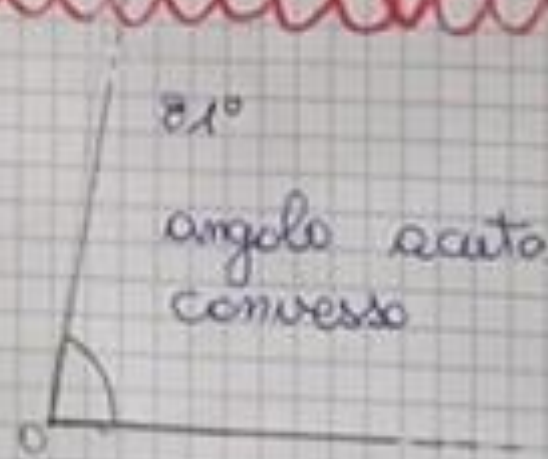 81°
angolo acuto
convesso
O